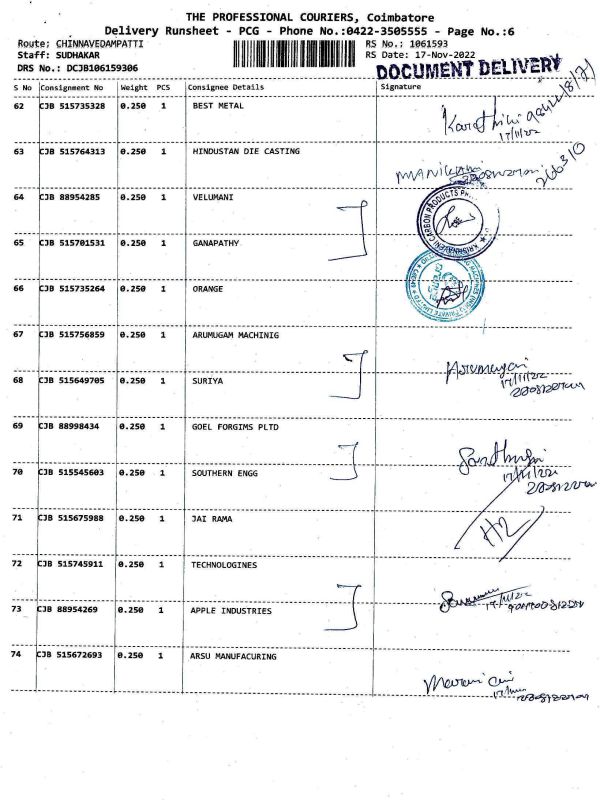 THE PROFESSIONAL COURIERS, Coimbatore
Delivery Runsheet - PCG - Phone No.:0422-3505555 - Page No.:6
Route: CHINNAVEDAMPATTI RS No.: 1061593
Staff: SUDHAKAR RS Date: 17-Nov-2022
DRS No.: DCJB106159306 DOCUMENT DELIVERY
S No Consignment No Weight PCS Consignee Details Signature
62 CJB 515735328 0.250 1 BEST METAL
17/11/22
63 CJB 515764313 0.250 1 HINDUSTAN DIE CASTING
266310
64 CJB 88954285 0.250 1 VELUMANI
KRISHNAVENI CARBON PRODUCTS
65 CJB 515701531 0.250 1 GANAPATHY
66 CJB 515735264 0.250 1 ORANGE
67 CJB 515756859 0.250 1 ARUMUGAM MACHINIG
68 CJB 515649705 0.250 1 SURIYA
17/11/22
69 CJB 88998434 0.250 1 GOEL FORGIMS PLTD
70 CJB 515545603 0.250 1 SOUTHERN ENGG
17/11/22
71 CJB 515675988 0.250 1 JAI RAMA
72 CJB 515745911 0.250 1 TECHNOLOGINES
73 CJB 88954269 0.250 1 APPLE INDUSTRIES
74 CJB 515672693 0.250 1 ARSU MANUFACURING